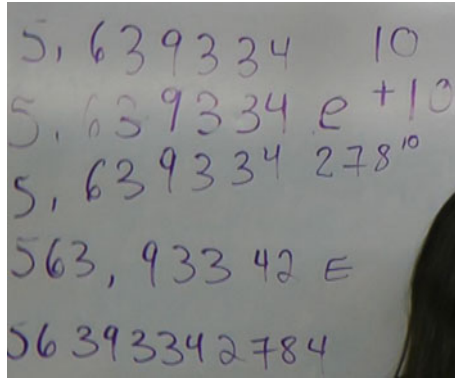 5, 639334 10
5, 639334 e +10
5, 639334 278¹⁰
563, 93342 E
56393342784